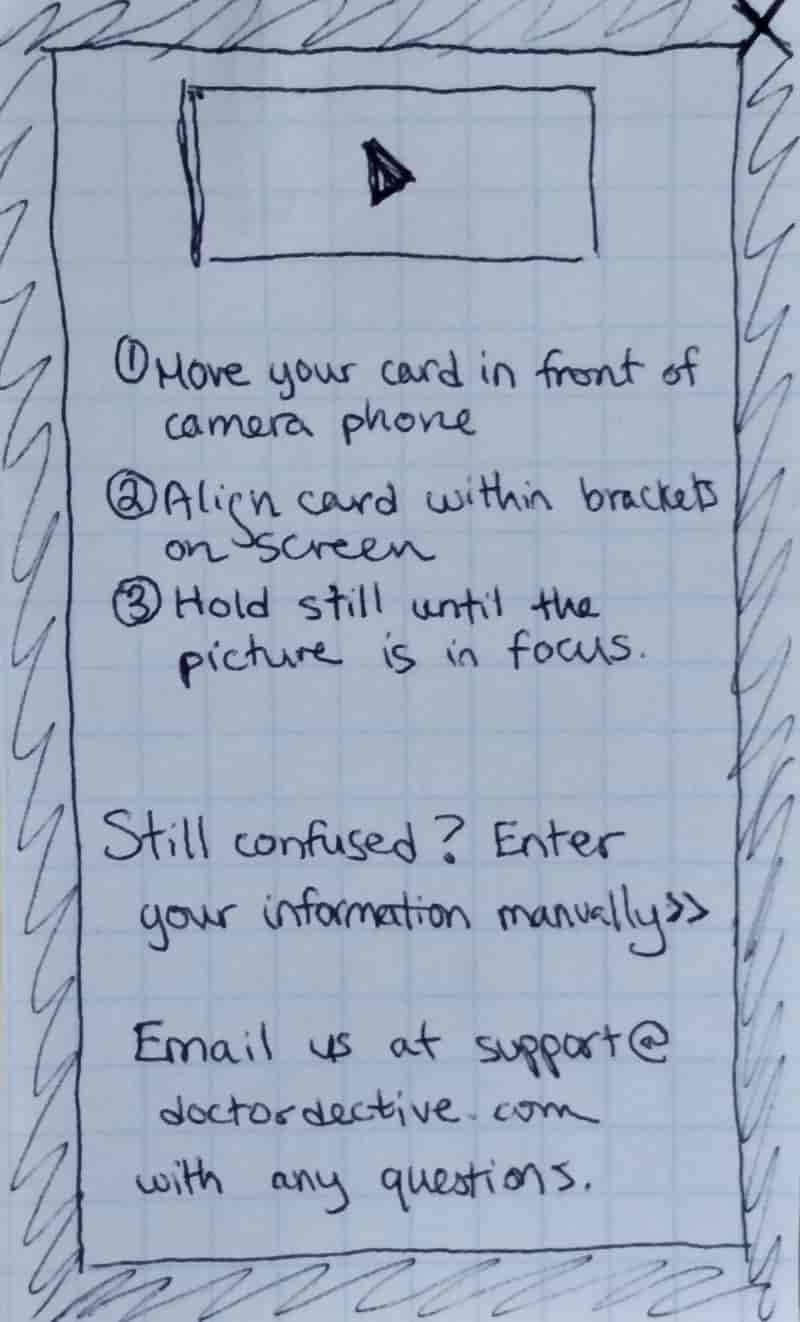 X
① Move your card in front of
camera phone
② Align card within brackets
on screen
③ Hold still until the
picture is in focus.
Still confused? Enter
your information manually>>
Email us at support@
doctordective.com
with any questions.